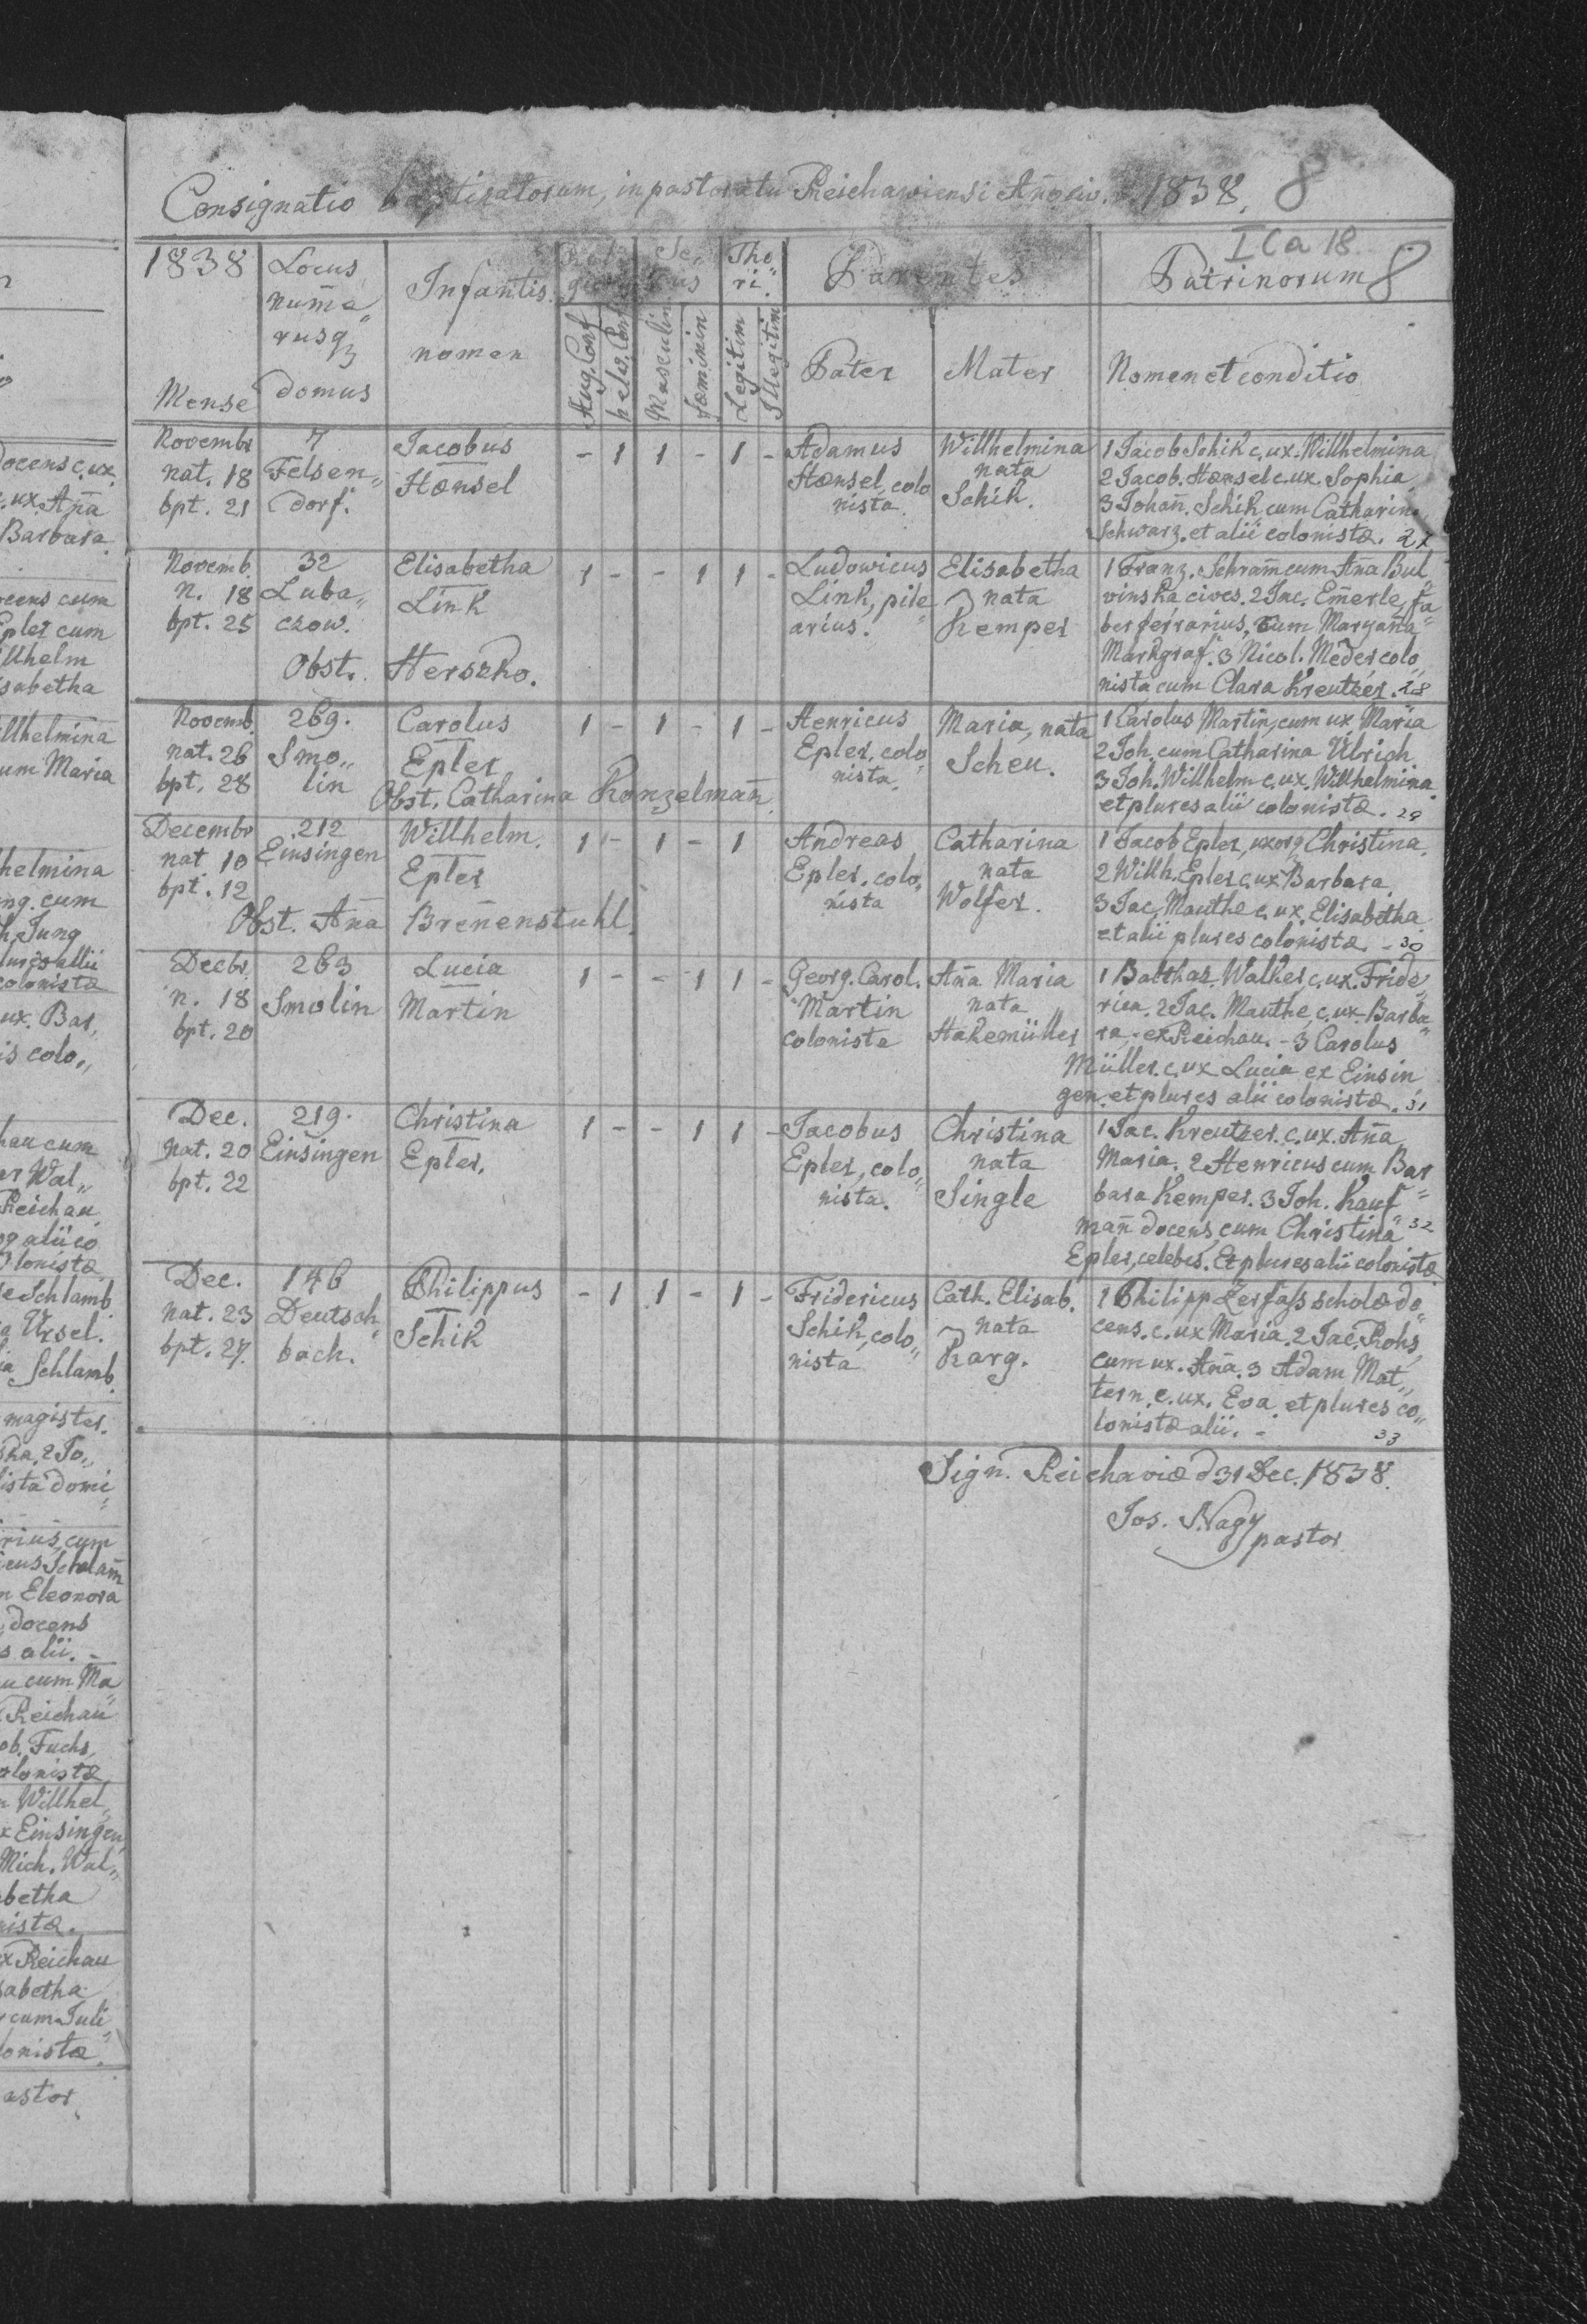 Consignatio baptisatorum, in pastoratu Reichawiensi 1838. 8
I C a 18
1838
Mense
Locus
numa„
rusq
domus
Infantis
nomen
Reli
gio
Aug. Conf
helv. Conf
Se„
xus
Masculin
fœminin
Tho„
ri
Legitim
Illegitim
Parentes
Pater
Mater
Patrinorum 8
Nomen et conditio
Novembr
nat. 18
bpt. 21
7
Felsen„
dorf.
Jacobus
Hænsel
- 1 1 - 1 -
Adamus
Hænsel, colo
nista.
Willhelmina
nata
Schik.
1 Jacob Schik c. ux. Willhelmina
2 Jacob. Hænsel c. ux. Sophia
3 Johañ. Schik cum Catharina
Schwarz. et alii colonistæ. 27
Novemb.
n. 18
bpt. 25
32
Luba„
czow.
Elisabetha
Link
Obst. Herszko.
1 - - 1 1 -
Ludowicus
Link, pile„
arius.
Elisabetha
nata
Kemper
1 Franz. Schram̄ cum Aña Bul„
vinska cives. 2 Jac. Em̄erle, fa„
ber ferrarius, cum Maryaña
Markgraf. 3 Nicol. Meder colo„
nista cum Clara Kreutzer. 28
Novemb.
nat. 26
bpt. 28
269.
Smo„
lin
Carolus
Epler
Obst. Catharina Konzelmañ.
1 - 1 - 1 -
Henricus
Epler, colo„
nista.
Maria, nata
Scheu.
1 Carolus Martin, cum ux Maria
2 Joh. cum Catharina Ulrich
3 Joh. Willhelm c. ux. Willhelmina
et plures alii colonistæ. 29
Decembr
nat 10
bpt. 12
212
Einsingen
Willhelm.
Epler
Obst. Aña Breñenstuhl.
1 - 1 - 1
Andreas
Epler, colo„
nista
Catharina
nata
Wolfer.
1 Jacob Epler, uxorq Christina.
2 Willh. Epler c. ux Barbara
3 Jac. Mauthe c. ux. Elisabetha
et alii plures colonistæ. - 30
Decbr.
n. 18
bpt. 20
263
Smolin
Lucia
Martin
1 - - 1 1 -
Georg. Carol.
Martin
colonista
Aña Maria
nata
Hakemüller
1 Balthas. Walher c. ux. Fride„
rica. 2 Jac. Mauthe, c. ux. Barba„
ra, ex Reichau. - 3 Carolus
Müller c. ux Lucia ex Einsin
gen. et plures alii colonistæ. 31
Dec.
nat. 20
bpt. 22
219.
Einsingen
Christina
Epler.
1 - - 1 1 -
Jacobus
Epler, colo„
nista.
Christina
nata
Single
1 Jac. Kreutzer. c. ux. Aña
Maria. 2 Henricus cum Bar„
bara Kemper. 3 Joh. Kauf„
mañ docens, cum Christina 32
Epler, celebes. Et plures alii colonistæ
Dec.
nat. 23
bpt. 27.
146
Deutsch„
bach.
Philippus
Schik
- 1 1 - 1 -
Fridericus
Schik, colo„
nista
Cath. Elisab.
nata
Karg.
1 Philipp Zerfass scholæ do„
cens. c. ux Maria. 2 Jac. Rohs,
cum ux. Aña. 3 Adam Mat„
tern, c. ux. Eva. et plures co„
lonistæ alii. - 33
Sign. Reichaviæ d 31 Dec. 1838.
Jos. Nagy
pastor